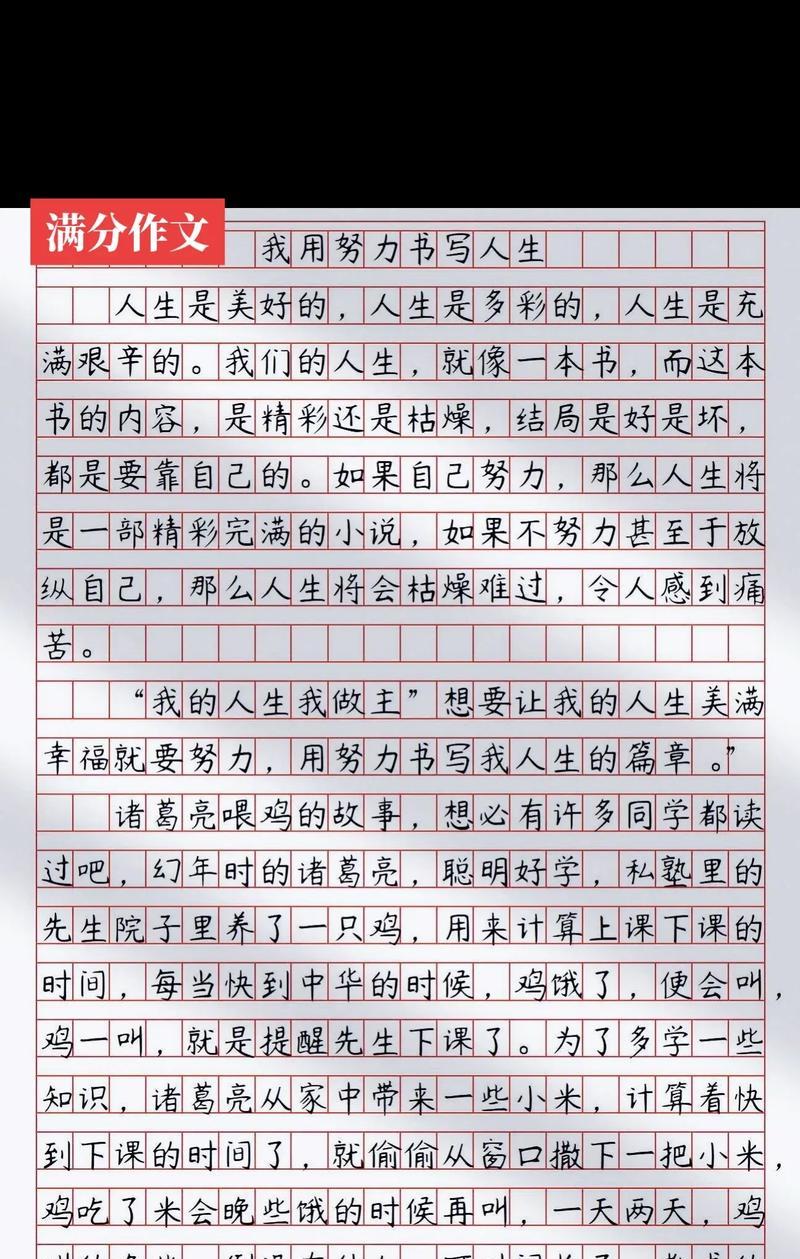 满分作文
我用努力书写人生
人生是美好的，人生是多彩的，人生是充
满艰辛的。我们的人生，就像一本书，而这本
书的内容，是精彩还是枯燥，结局是好是坏，
都是要靠自己的。如果自己努力，那么人生将
是一部精彩完满的小说，如果不努力甚至于放
纵自己，那么人生将会枯燥难过，令人感到痛
苦。
“我的人生我做主”想要让我的人生美满
幸福就要努力，用努力书写我人生的篇章。”
诸葛亮喂鸡的故事，想必有许多同学都读
过吧，幻年时的诸葛亮，聪明好学，私塾里的
先生院子里养了一只鸡，用来计算上课下课的
时间，每当快到中华的时候，鸡饿了，便会叫，
鸡一叫，就是提醒先生下课了。为了多学一些
知识，诸葛亮从家中带来一些小米，计算着快
到下课的时间了，就偷偷从窗口撒下一把小米，
鸡吃了米会晚些饿的时候再叫，一天两天，鸡